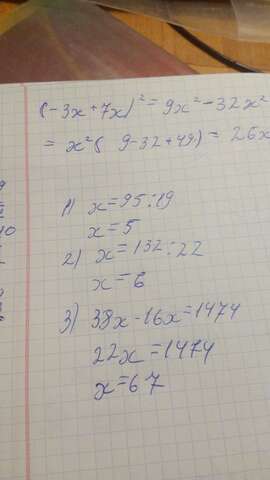 (-3x+7x)² = 9x² - 32x²
= x²( 9-32+49) = 26x
1) x=95:19
x=5
2) x=132:22
x=6
3) 38x-16x=1474
22x=1474
x=67